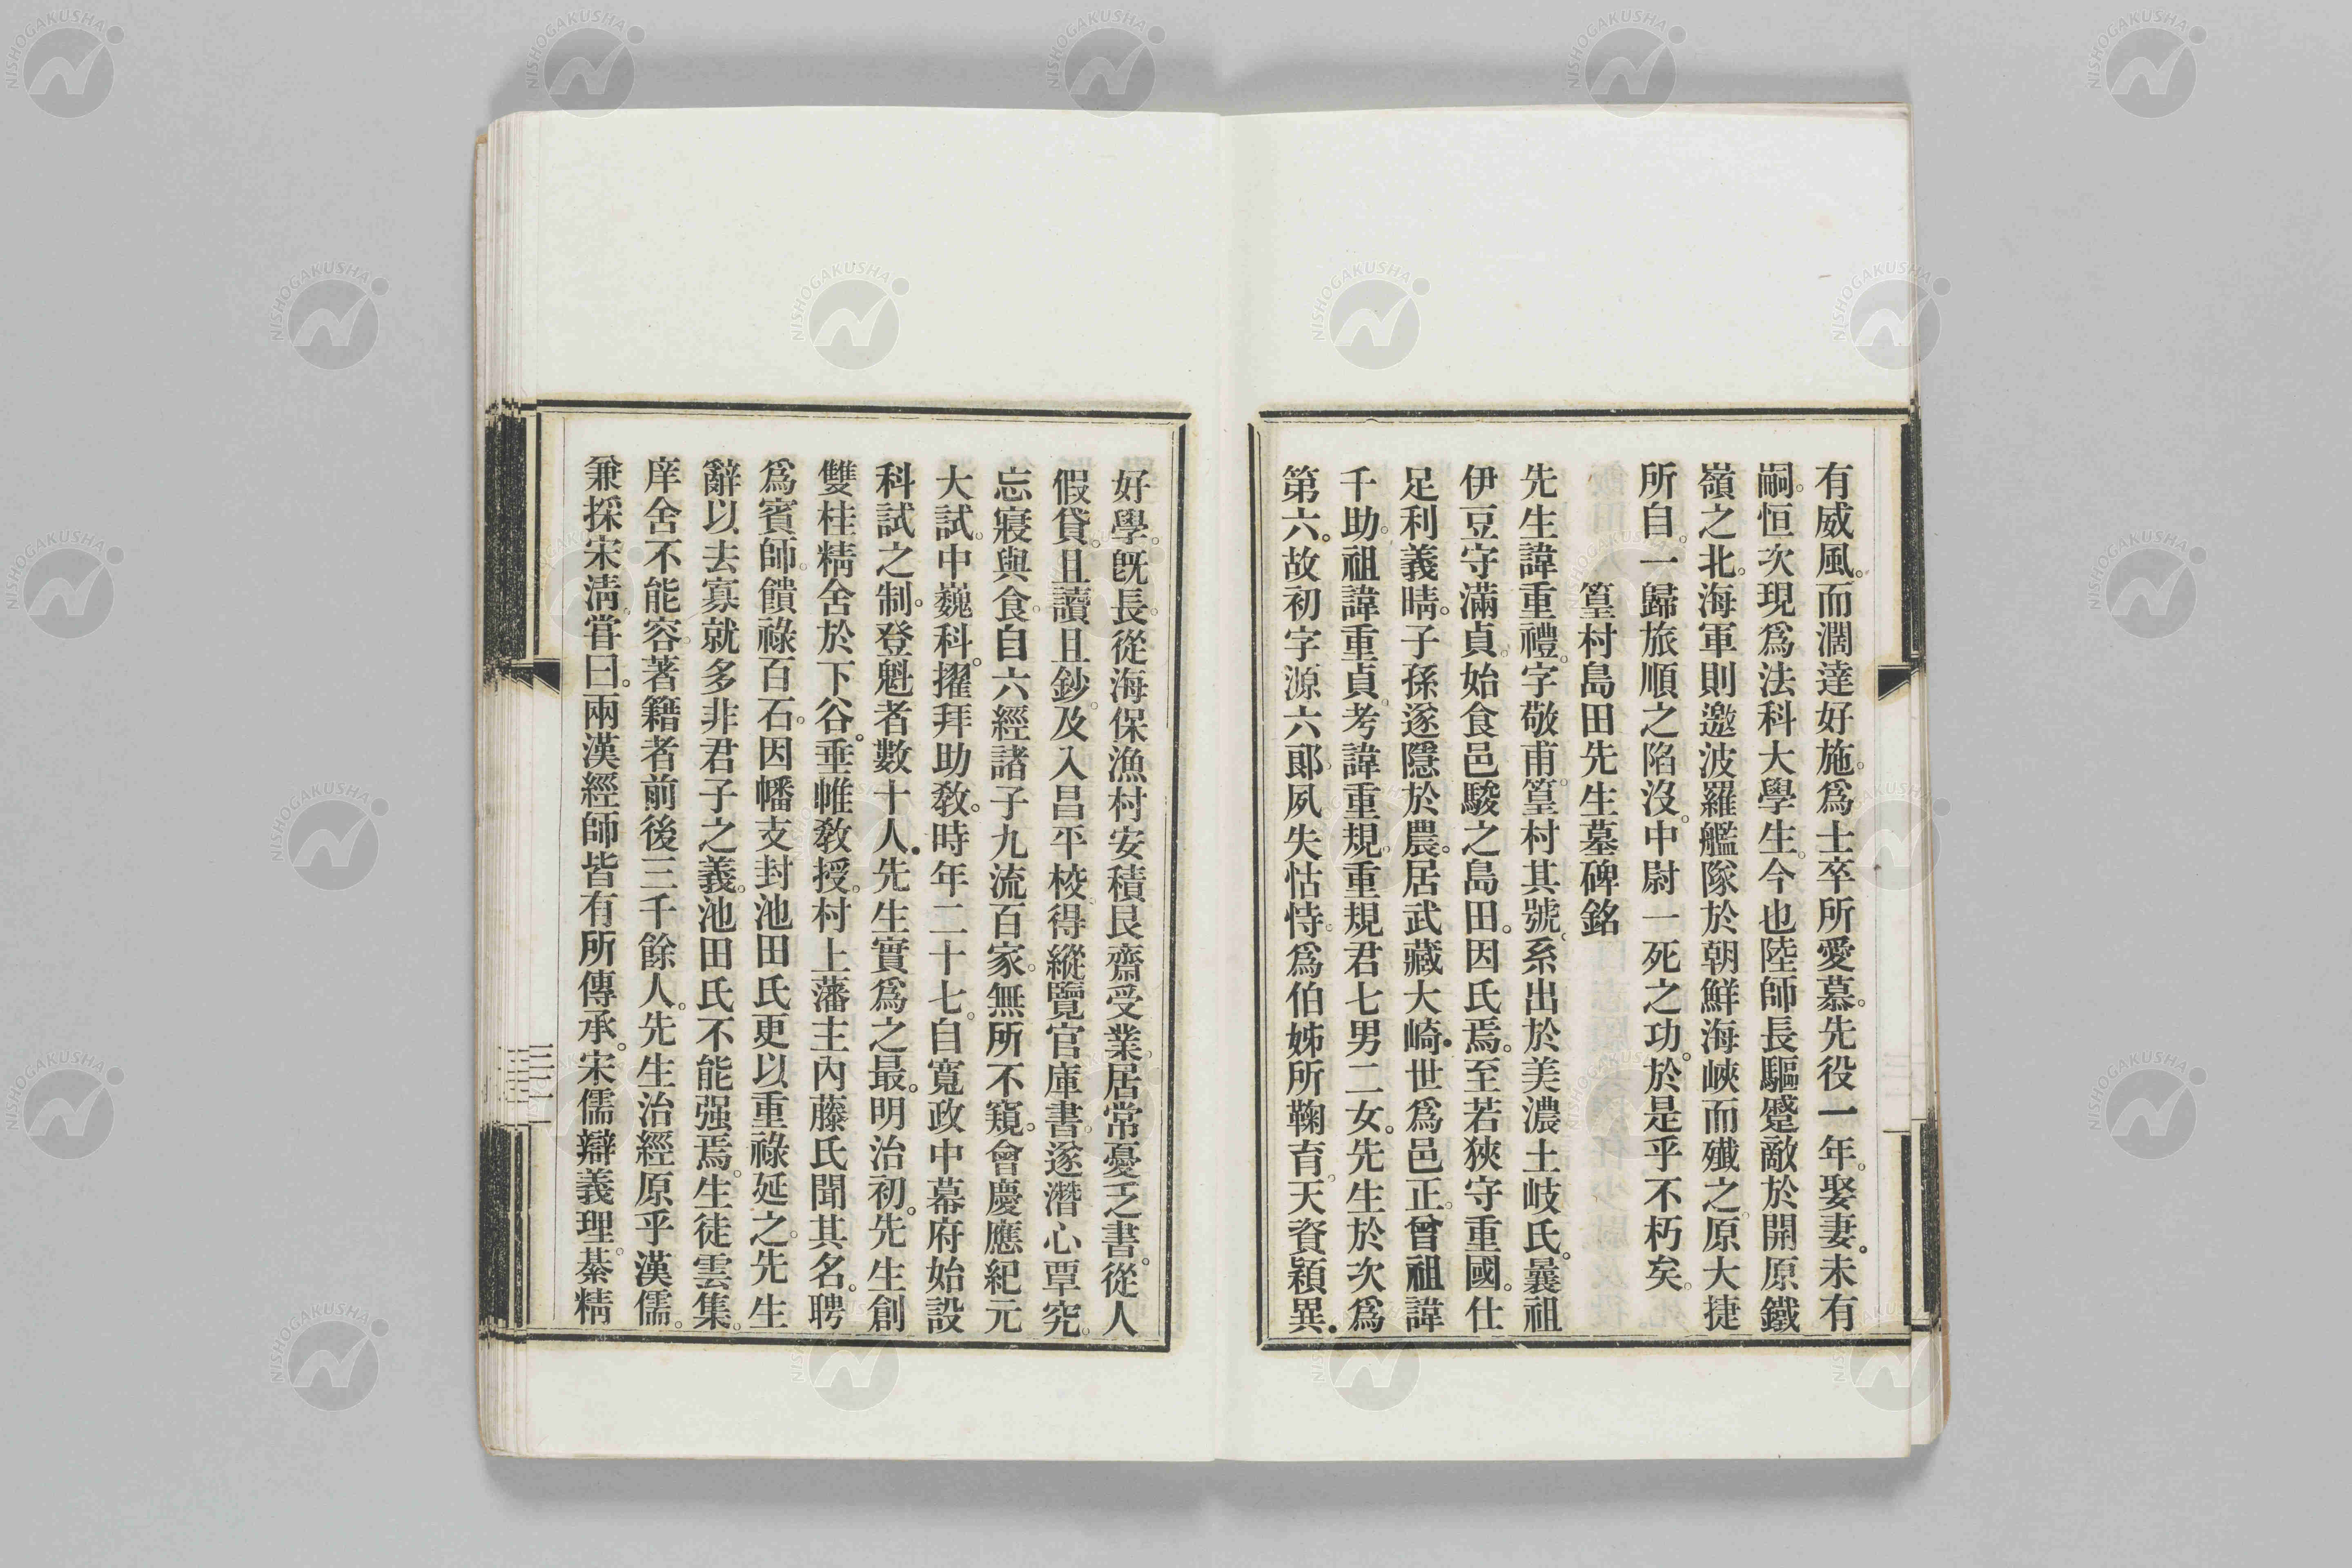 有威風。而濶達好施。爲士卒所愛慕。先役一年。娶妻。未有
嗣。恒次現爲法科大學生。今也陸師長驅蹙敵於開原鐵
嶺之北。海軍則邀波羅艦隊於朝鮮海峽而殲之。原大捷
所自。一歸旅順之陷沒。中尉一死之功。於是乎不朽矣。
篁村島田先生墓碑銘
先生諱重禮。字敬甫。篁村其號。系出於美濃土岐氏。曩祖
伊豆守滿貞。始食邑駿之島田。因氏焉。至若狹守重國。仕
足利義晴。子孫遂隱於農。居武藏大崎。世爲邑正。曾祖諱
千助。祖諱重貞。考諱重規。重規君七男二女。先生於次爲
第六。故初字源六郎。夙失怙恃。爲伯姊所鞠育。天資穎異。
好學。旣長。從海保漁村安積艮齋受業。居常憂乏書。從人
假貸。且讀且鈔。及入昌平校。得縱覽官庫書。遂潛心覃究。
忘寢與食。自六經諸子九流百家。無所不窺。會慶應紀元
大試。中巍科。擢拜助敎。時年二十七。自寬政中幕府始設
科試之制。登魁者數十人。先生實爲之最。明治初。先生創
雙桂精舍於下谷。垂帷敎授。村上藩主內藤氏聞其名。聘
爲賓師。饋祿百石。因幡支封池田氏更以重祿延之。先生
辭以去寡就多非君子之義。池田氏不能强焉。生徒雲集。
庠舍不能容。著籍者前後三千餘人。先生治經原乎漢儒。
兼採宋淸。嘗曰。兩漢經師皆有所傳承。宋儒辯義理。綦精
三二
NISHOGAKUSHA